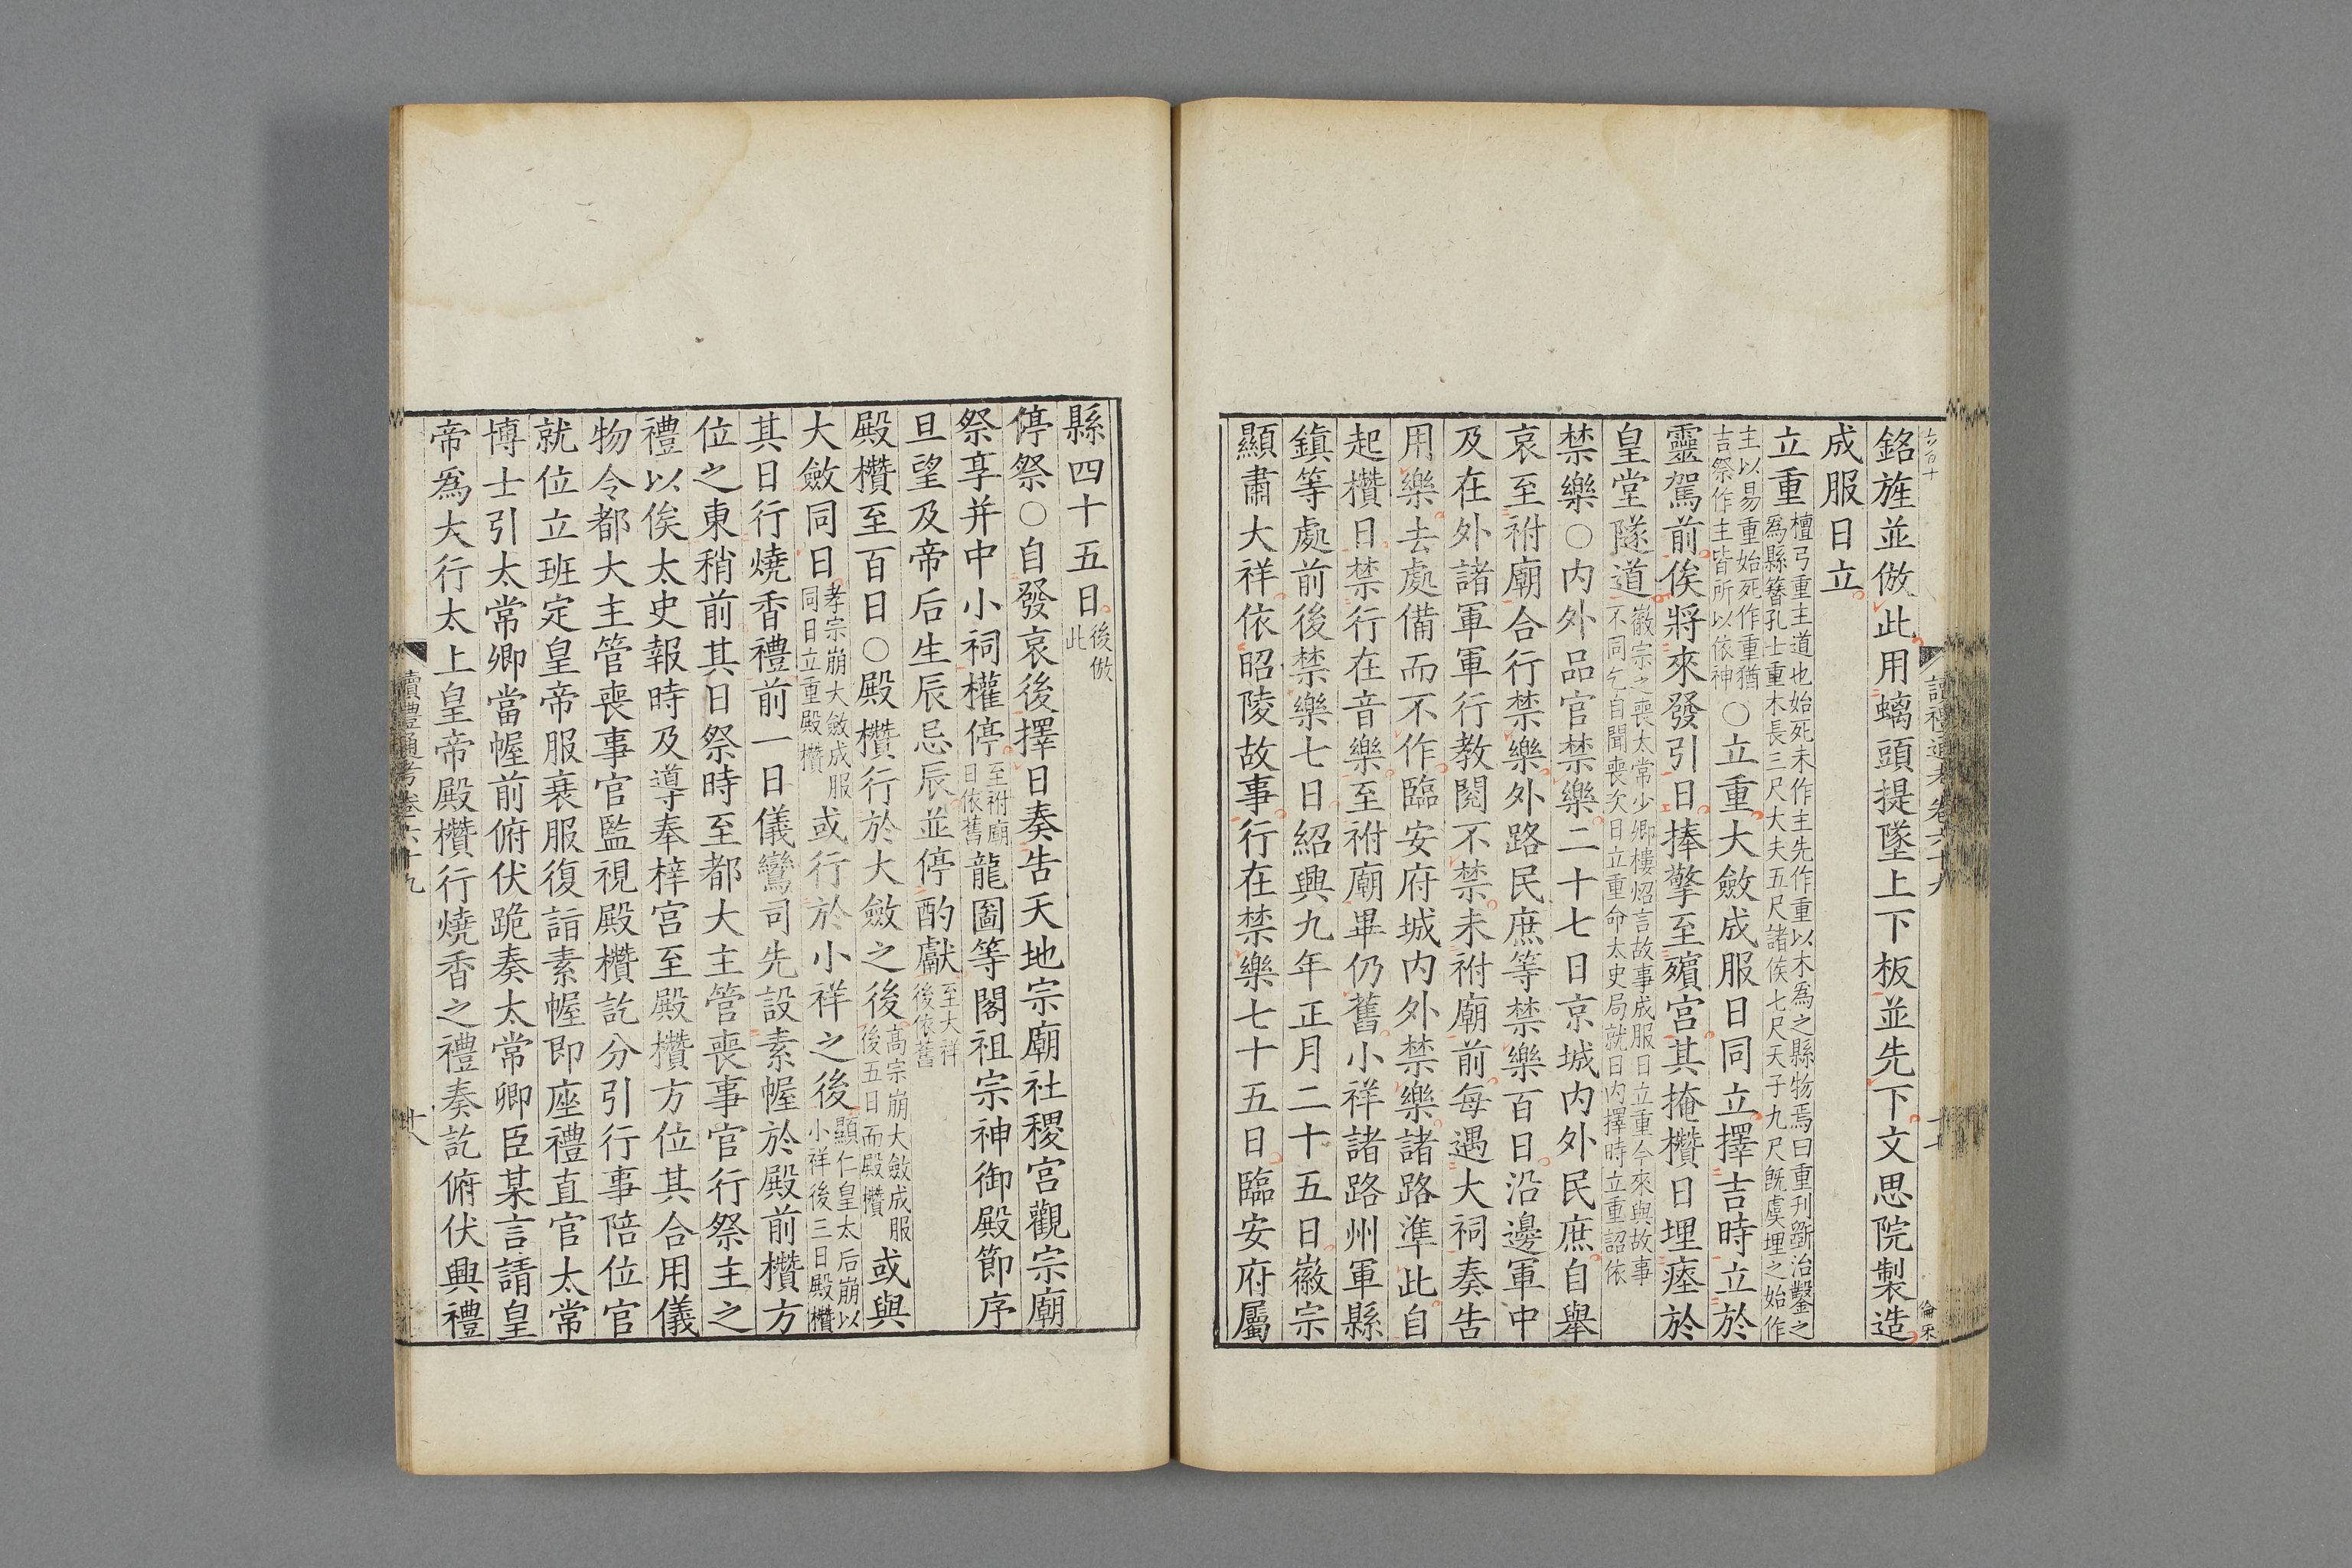 銘旌並倣此用螭頭提墜上下板並先下文思院製造
成服日立
立重檀弓重主道也始死未作主先作重以木為之縣物焉曰重刋斵治鑿之
為縣簪孔士重木長三尺大夫五尺諸侯七尺天子九尺旣虞埋之始作
主以易重始死作重猶
吉祭作主皆所以依神○立重大斂成服日同立擇吉時立於
靈駕前俟將來發引日捧擎至殯宫其掩欑日埋瘞於
皇堂隧道徽宗之喪太常少卿樓炤言故事成服日立重今來與故事
不同乞自聞喪次日立重命太史局就日内擇時立重詔依
禁樂○内外品官禁樂二十七日京城内外民庶自舉
哀至祔廟合行禁樂外路民庶等禁樂百日沿邊軍中
及在外諸軍軍行教閱不禁未祔廟前每遇大祠奏告
用樂去處備而不作臨安府城内外禁樂諸路準此自
起欑日禁行在音樂至祔廟畢仍舊小祥諸路州軍縣
鎮等處前後禁樂七日紹興九年正月二十五日徽宗
顯肅大祥依昭陵故事行在禁樂七十五日臨安府屬
讀禮通考卷六十九
縣四十五日後倣
此
停祭○自發哀後擇日奏告天地宗廟社稷宫觀宗廟
祭享并中小祠權停至祔廟
日依舊龍圖等閣祖宗神御殿節序
旦望及帝后生辰忌辰並停酌獻至大祥
後依舊
殿欑至百日○殿欑行於大斂之後高宗崩大斂成服
後五日而殿欑或與
大斂同日孝宗崩大斂成服
同日立重殿欑或行於小祥之後顯仁皇太后崩以
小祥後三日殿欑
其日行燒香禮前一日儀鸞司先設素幄於殿前欑方
位之東稍前其日祭時至都大主管喪事官行祭主之
禮以俟太史報時及導奉梓宫至殿欑方位其合用儀
物令都大主管喪事官監視殿欑訖分引行事陪位官
就位立班定皇帝服衰服復詣素幄即座禮直官太常
博士引太常卿當幄前俯伏跪奏太常卿臣某言請皇
帝爲大行太上皇帝殿欑行燒香之禮奏訖俯伏興禮
讀禮通考卷六十九
十八